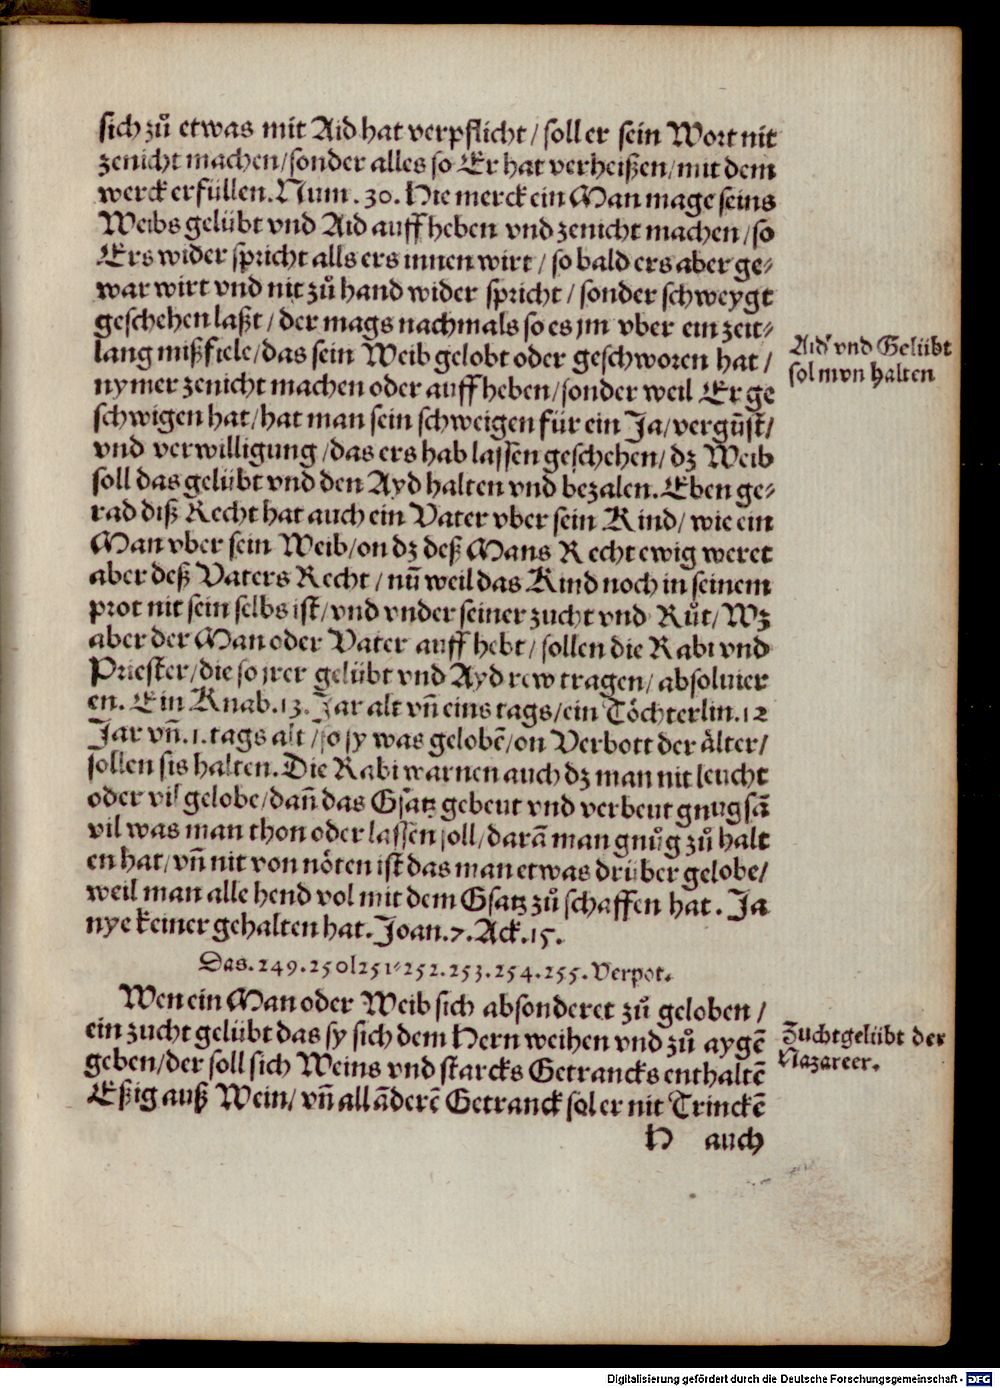 sich zů etwas mit Aid hat verpflicht / soll er sein Wort nit
zenicht machen/sonder alles so Er hat verheißen/mit dem
werck erfüllen. Num. 30. Hie merck ein Man mage seins
Weibs gelübt vnd Aid auff heben vnd zenicht machen/so
Ers wider spricht alls ers innen wirt / so bald ers aber ge-
war wirt vnd nit zů hand wider spricht / sonder schweygt
geschehen laßt / der mags nachmals so es jm vber ein zeit-
lang mißfiele/das sein Weib gelobt oder geschworen hat /
nymer zenicht machen oder auff heben/sonder weil Er ge
schwigen hat/hat man sein schweigen für ein Ja/vergüst/
vnd verwilligung/das ers hab lassen geschehen/dz Weib
soll das gelübt vnd den Ayd halten vnd bezalen. Eben ge-
rad diß Recht hat auch ein Vater vber sein Kind/wie ein
Man vber sein Weib/on dz deß Mans Recht ewig weret
aber deß Vaters Recht / nū weil das Kind noch in seinem
prot nit sein selbs ist/vnd vnder seiner zucht vnd Růt/Wz
aber der Man oder Vater auff hebt/sollen die Rabi vnd
Priester/die so jrer gelübt vnd Ayd rew tragen/absoluier
en. Ein Knab.13. Jar alt vn̄ eins tags/ein Töchterlin.12
Jar vn̄.1.tags alt/so sy was gelobē/on Verbott der älter/
sollen sis halten. Die Rabi warnen auch dz man nit leucht
oder vil gelobe/dañ das Gsatz gebeut vnd verbeut gnugsā
vil was man thon oder lassen soll/darā man gnůg zů halt
en hat/vn̄ nit von nöten ist das man etwas drüber gelobe/
weil man alle hend vol mit dem Gsatz zů schaffen hat. Ja
nye keiner gehalten hat. Joan.7. Ack.15.
Das.249.250[251-252.253.254.255.Verpot.
Wen ein Man oder Weib sich absonderet zů geloben /
ein zucht gelübt das sy sich dem Hern weihen vnd zů aygē
geben/der soll sich Weins vnd starcks Getrancks enthaltē
Eßig auß Wein/vn̄ all āderē Getranck sol er nit Trinckē
H auch
Aid vnd Gelübt
sol mvn halten
Zuchtgelübt der
Nazareer.
Digitalisierung gefördert durch die Deutsche Forschungsgemeinschaft - DFG